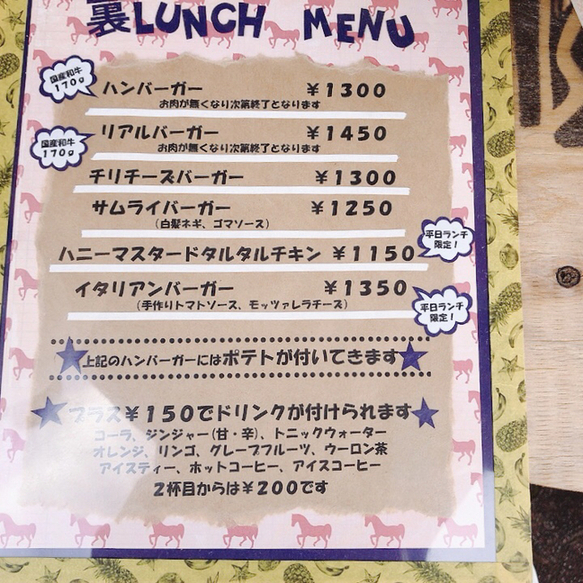 裏LUNCH MENU
国産和牛
170g
ハンバーガー ￥1300
お肉が無くなり次第終了となります
国産和牛
170g
リアルバーガー ￥1450
お肉が無くなり次第終了となります
チリチーズバーガー ￥1300
サムライバーガー ￥1250
(白髪ネギ、ゴマソース)
平日ランチ
限定！
ハニーマスタードタルタルチキン ￥1150
イタリアンバーガー ￥1350
(手作りトマトソース、モッツァレラチーズ)
平日ランチ
限定！
上記のハンバーガーにはポテトが付いてきます
プラス￥150でドリンクが付けられます
コーラ、ジンジャー(甘・辛)、トニックウォーター
オレンジ、リンゴ、グレープフルーツ、ウーロン茶
アイスティー、ホットコーヒー、アイスコーヒー
2杯目からは￥200です